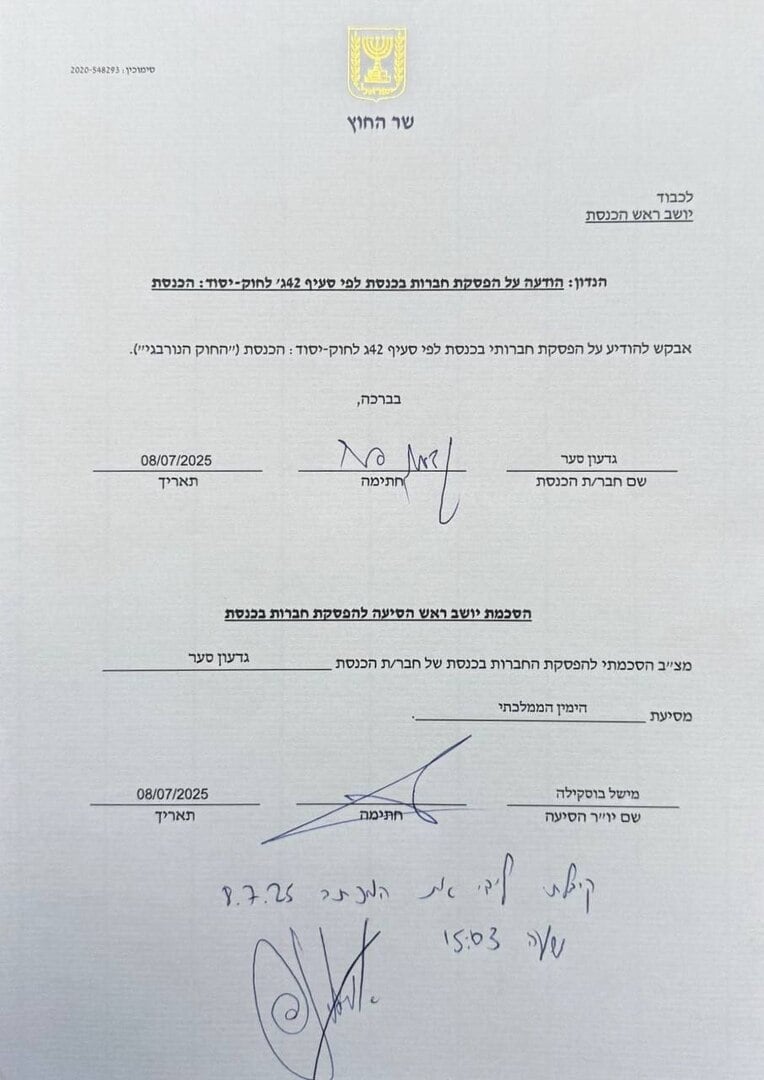 סימוכין : 2020-548293
ישראל
שר החוץ
לכבוד
יושב ראש הכנסת
הנדון: הודעה על הפסקת חברות בכנסת לפי סעיף 42ג' לחוק-יסוד: הכנסת
אבקש להודיע על הפסקת חברותי בכנסת לפי סעיף 42ג לחוק-יסוד: הכנסת ("החוק הנורבגי").
בברכה,
גדעון סער 08/07/2025
שם חבר/ת הכנסת חתימה תאריך
הסכמת יושב ראש הסיעה להפסקת חברות בכנסת
מצ"ב הסכמתי להפסקת החברות בכנסת של חבר/ת הכנסת גדעון סער
מסיעת הימין הממלכתי.
מישל בוסקילה 08/07/2025
שם יו"ר הסיעה חתימה תאריך
קיבלתי לידי את המכתב 8.7.25
שעה 15:03